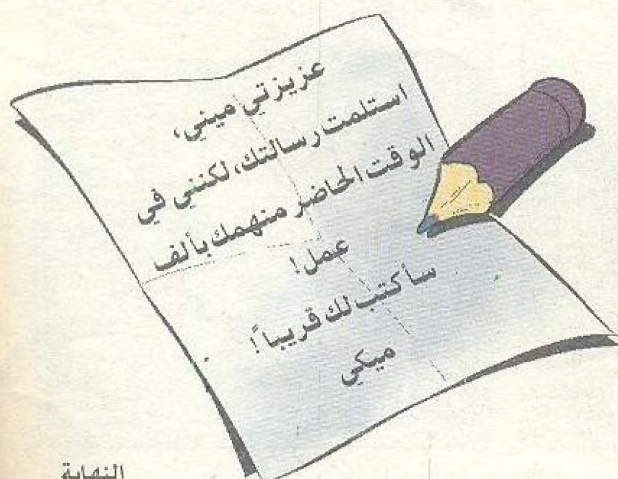 عزيزتي ميني،
استلمت رسالتك، لكنني في
الوقت الحاضر منهمك بألف
عمل!
سأكتب لك قريباً!
ميكي
النهاية